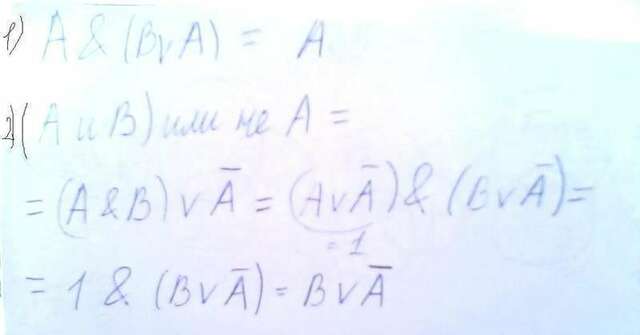 1) A & (B∨A) = A
2) (A и B) или не A =
= (A & B) ∨ Ā = (A∨Ā) & (B∨Ā) =
= 1
= 1 & (B∨Ā) = B∨Ā